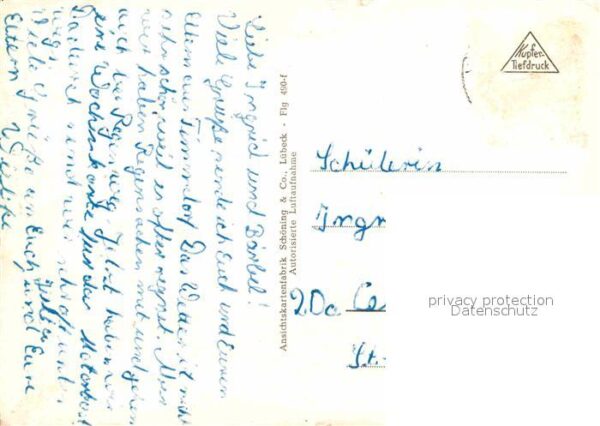 Liebe Ingrid und Bärbel!
Viele Grüße sende ich Euch und Euren
Eltern aus Timmendorf. Das Wetter ist nicht
sehr schön, weil es öfter regnet. Aber
wir haben Regensachen mit und gehen
auch bei Regen weg. Jetzt haben wir
eine Wochenkarte für das Motorboot
Dadurch sind wir schroff unter-
wegs.
Viele Grüße an Euch und Eure
Eltern
Ansichtskartenfabrik Schöning & Co., Lübeck - Flg 490-f
Autorisierte Luftaufnahme
Kupfer-
Tiefdruck
Schülerin
Ingr
20a Ce
St.
privacy protection
Datenschutz